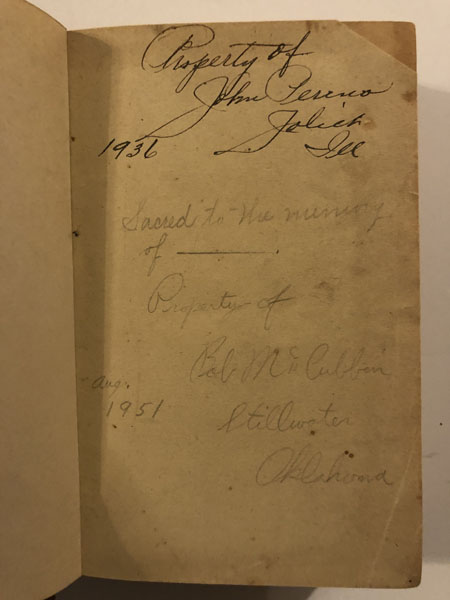 Property of
John Pereno
Joliet
1936 Ill
Sacred to the memory
of ———.
Property of
Bob McCubbin
Aug.
1951
Stillwater
Oklahoma